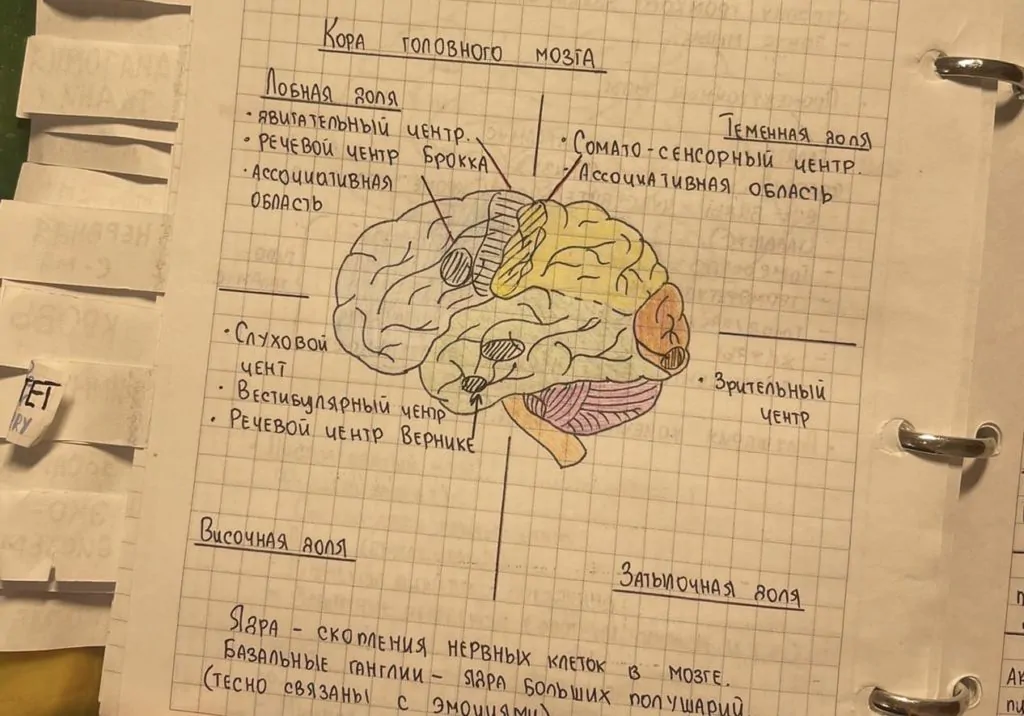 Кора головного мозга
Лобная доля
• двигательный центр.
• Речевой центр Брокка
• Ассоциативная
область
Теменная доля
• Сомато-сенсорный центр.
• Ассоциативная область
• Слуховой
чент
• Вестибулярный центр
• Речевой центр Вернике
Височная доля
• Зрительный
центр
Затылочная доля
Ядра - скопления нервных клеток в мозге.
Базальные ганглии - ядра больших полушарий
(тесно связаны с эмоциями)
ЕТ